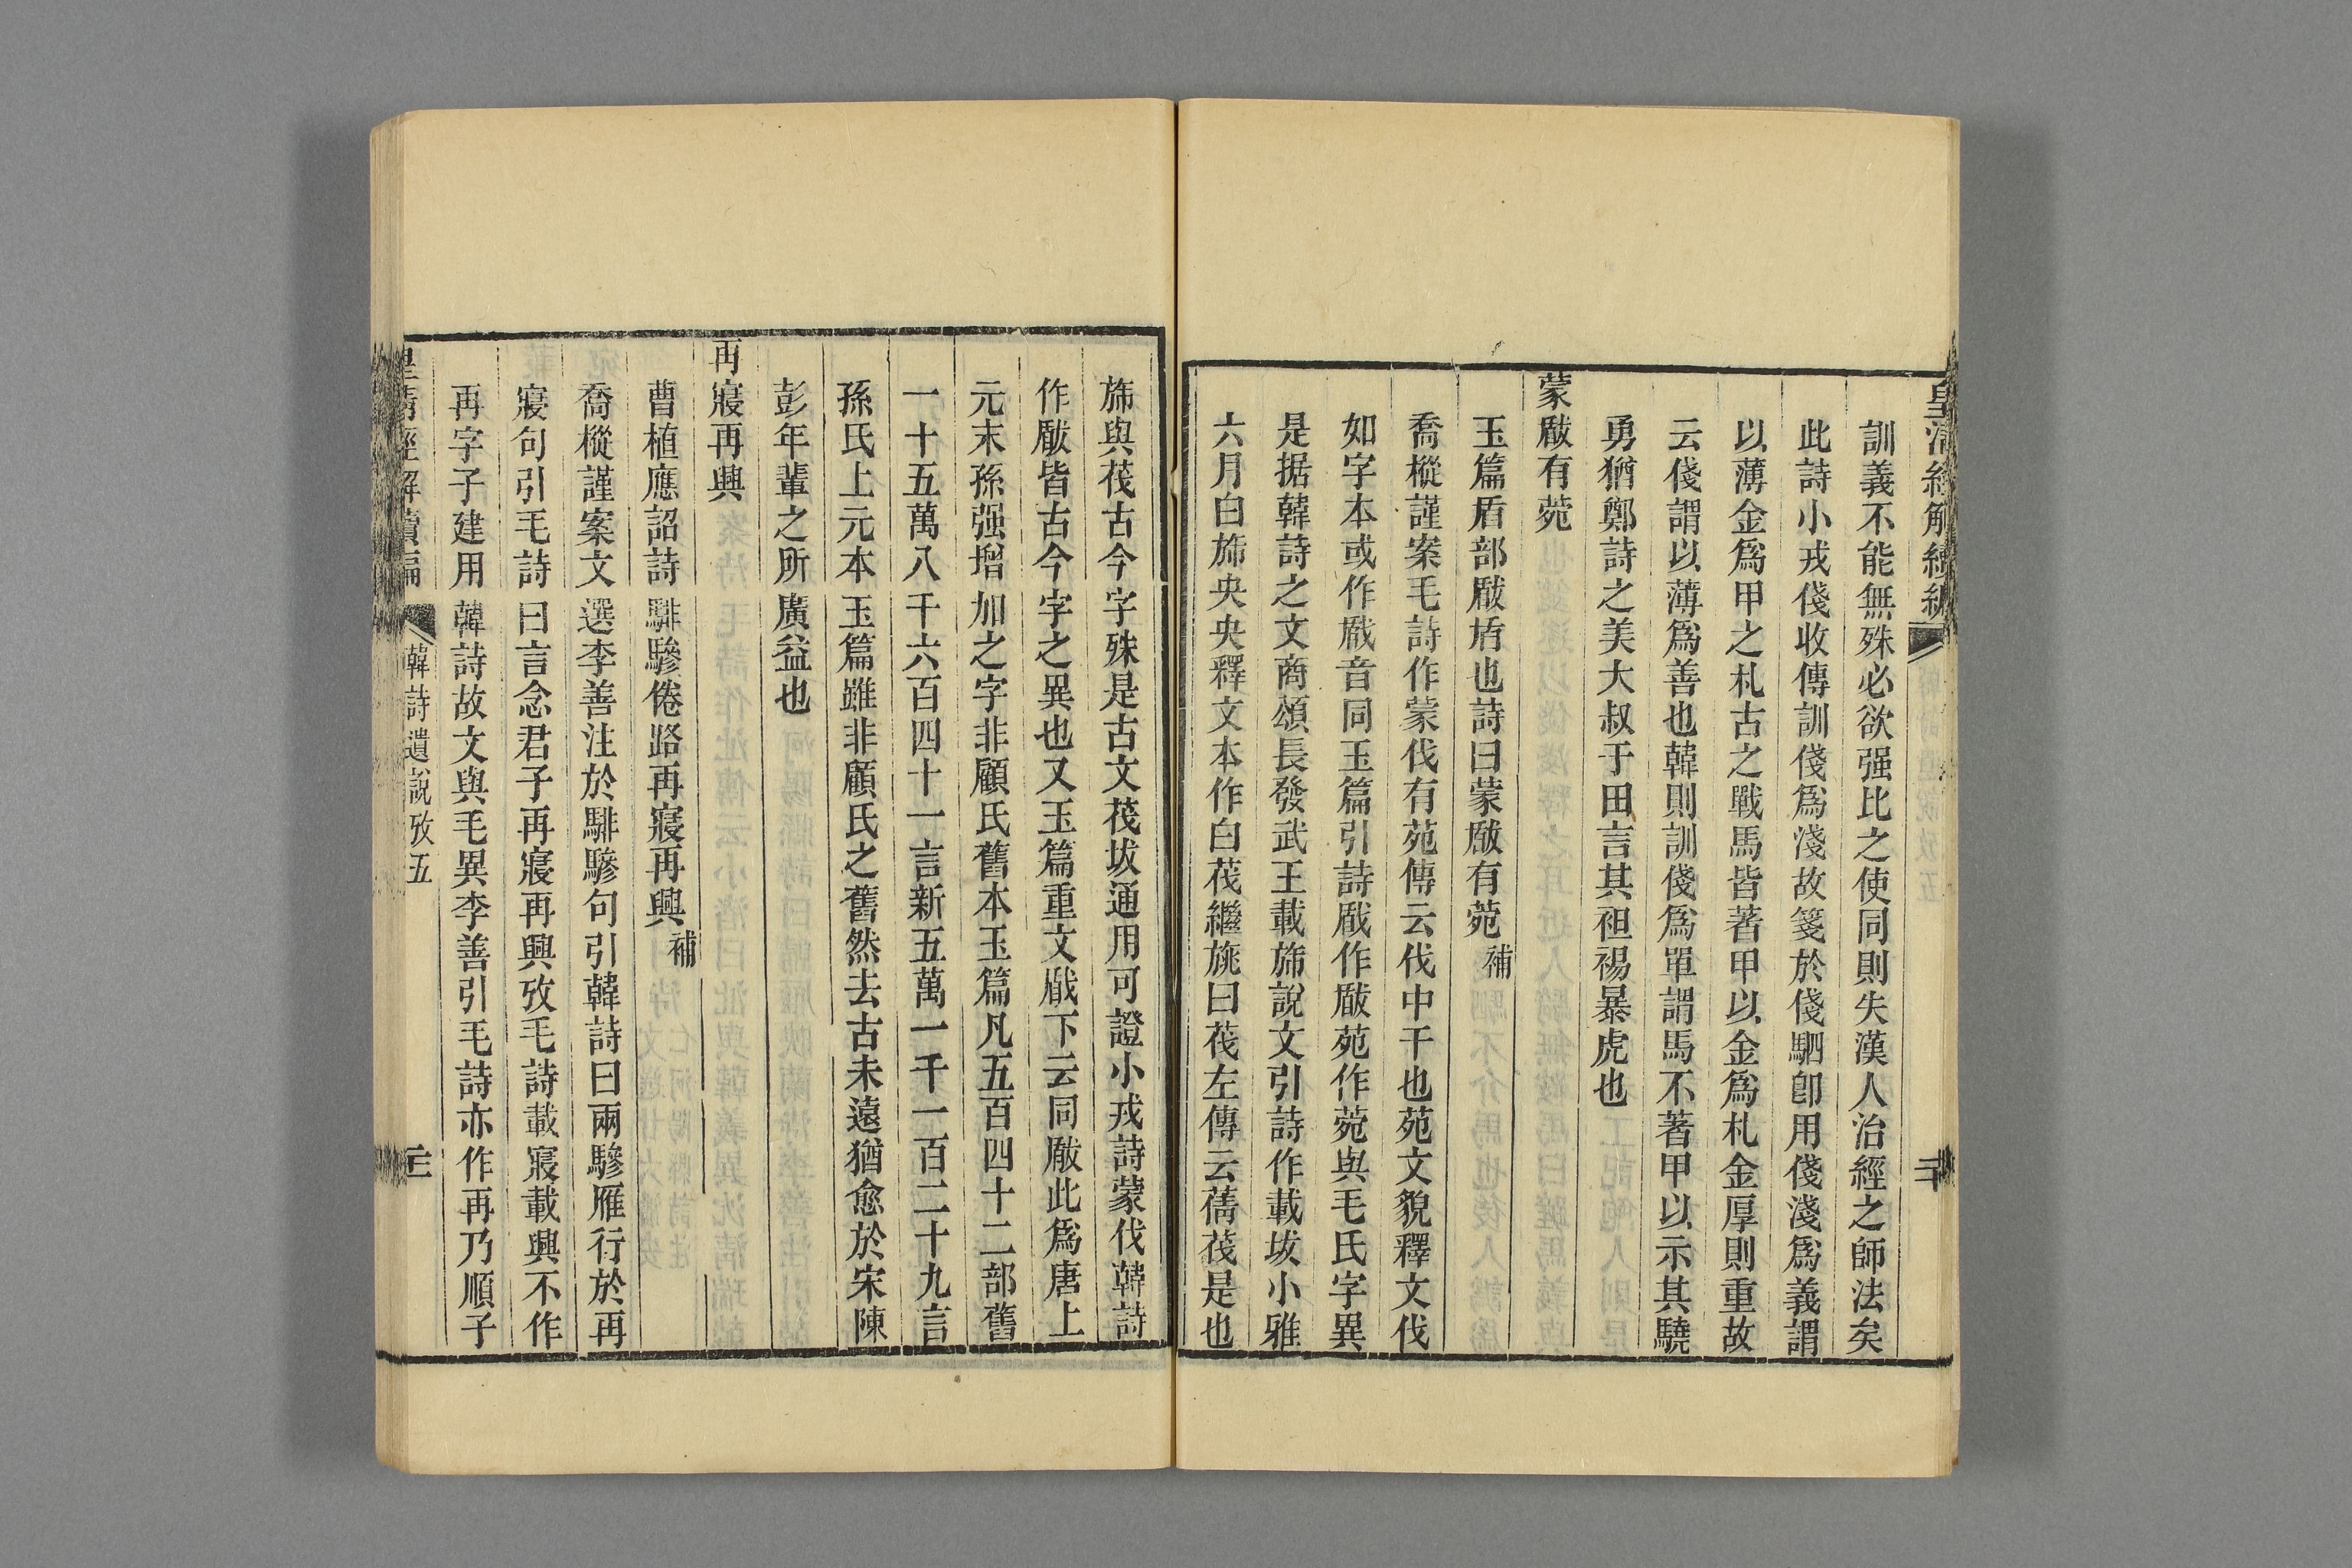 皇清經解續編
訓義不能無殊必欲强比之使同則失漢人治經之師法矣
此詩小戎俴收傳訓俴爲淺故箋於俴駟卽用俴淺爲義謂
以薄金爲甲之札古之戰馬皆著甲以金爲札金厚則重故
云俴謂以薄爲善也韓則訓俴爲單謂馬不著甲以示其驍
勇猶鄭詩之美大叔于田言其袒裼暴虎也
蒙瞂有菀
玉篇盾部瞂盾也詩曰蒙瞂有菀補
喬樅謹案毛詩作蒙伐有苑傳云伐中干也苑文貌釋文伐
如字本或作瞂音同玉篇引詩戰作瞂苑作菀與毛氏字異
是据韓詩之文商頌長發武王載斾說文引詩作載坺小雅
六月白斾央央釋文本作白茷繼旐曰茷左傳云蒨茷是也
斾與茷古今字殊是古文茷坺通用可證小戎詩蒙伐韓詩
作瞂皆古今字之異也又玉篇重文戰下云同瞂此爲唐上
元末孫强增加之字非顧氏舊本玉篇凡五百四十二部舊
一十五萬八千六百四十一言新五萬一千一百二十九言
孫氏上元本玉篇雖非顧氏之舊然去古未遠猶愈於宋陳
彭年輩之所廣益也
再寢再興
曹植應詔詩騑驂倦路再寢再興補
喬樅謹案文選李善注於騑驂句引韓詩曰兩驂雁行於再
寢句引毛詩曰言念君子再寢再興攷毛詩載寢載興不作
再字子建用韓詩故文與毛異李善引毛詩亦作再乃順子
皇清經解續編 韓詩遺說攷五